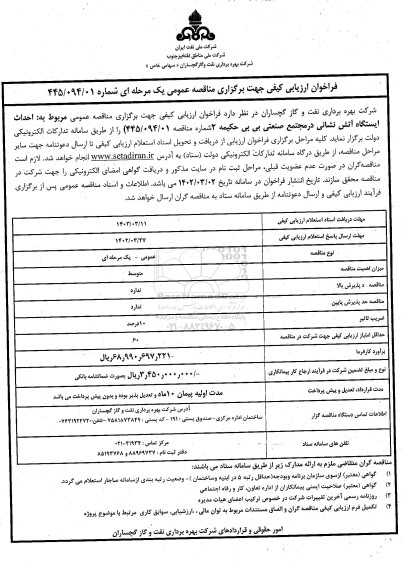 شرکت ملی نفت ایران
شرکت ملی مناطق نفتخیز جنوب
شرکت بهره برداری نفت و گاز گچساران « سهامی خاص »
فراخوان ارزیابی کیفی جهت برگزاری مناقصه عمومی یک مرحله ای شماره ۴۴۵/۰۹۴/۰۱
شرکت بهره برداری نفت و گاز گچساران در نظر دارد فراخوان ارزیابی کیفی جهت برگزاری مناقصه عمومی مربوط به: احداث
ایستگاه آتش نشانی درمجتمع صنعتی بی بی حکیمه ۲ شماره مناقصه (۴۴۵/۰۹۴/۰۱) را از طریق سامانه تدارکات الکترونیکی
دولت برگزار نماید. کلیه مراحل برگزاری فراخوان ارزیابی از دریافت و تحویل اسناد استعلام ارزیابی کیفی تا ارسال دعوتنامه جهت سایر
مراحل مناقصه، از طریق درگاه سامانه تدارکات الکترونیکی دولت (ستاد) به آدرس www.setadiran.ir انجام خواهد شد. لازم است
مناقصه‌گران در صورت عدم عضویت قبلی، مراحل ثبت نام در سایت مذکور و دریافت گواهی امضای الکترونیکی را جهت شرکت در
مناقصه محقق سازند. تاریخ انتشار فراخوان در سامانه تاریخ ۱۴۰۲/۰۳/۰۲ می باشد. اطلاعات و اسناد مناقصه عمومی پس از برگزاری
فرآیند ارزیابی کیفی و ارسال دعوتنامه از طریق سامانه ستاد به مناقصه گران ارسال خواهد شد.
مهلت دریافت اسناد استعلام ارزیابی کیفی ۱۴۰۲/۰۳/۱۱
مهلت ارسال پاسخ استعلام ارزیابی کیفی ۱۴۰۲/۰۳/۲۷
نوع مناقصه عمومی - یک مرحله ای
میزان اهمیت مناقصه متوسط
مناقصه د پذیرش بالا ندارد
مناقصه حد پذیرش پایین ندارد
ضریب تاثیر ۱۰درصد
حداقل امتیاز ارزیابی کیفی جهت شرکت در مناقصه ۶۰
برآورد کارفرما ۶۸٫۹۹۰٫۶۹۷٫۲۲۱-ریال
نوع و مبلغ تضمین شرکت در فرآیند ارجاع کار پیمانکاری ۳٫۴۵۰٫۰۰۰٫۰۰۰/-ریال بصورت ضمانتنامه بانکی
مدت قرارداد، تعدیل و پیش پرداخت مدت اولیه پیمان ۱۰ماه و تعدیل پذیر بوده و بدون پیش پرداخت می باشد
اطلاعات تماس دستگاه مناقصه گزار آدرس شرکت بهره برداری نفت و گاز گچساران
ساختمان اداره مرکزی-صندوق پستی : ۱۹۱ - کد پستی :
تلفن های سامانه ستاد مرکز تماس :
دفتر ثبت نام : ۸۸۹۶۹۷۳۷ و ۸۵۱۹۳۷۶۸
مناقصه گران متقاضی ملزم به ارائه مدارک زیر از طریق سامانه ستاد می باشند:
۱) گواهی (معتبر) ازسوی سازمان برنامه وبودجه(حداقل رتبه ۵ در ابنیه وساختمان) - وضعیت رتبه بندی ازسامانه ساجار استعلام می گردد.
۲) گواهی (معتبر) صلاحیت ایمنی پیمانکاران از اداره تعاون، کار و رفاه اجتماعی
۳) روزنامه رسمی آخرین تغییرات شرکت در خصوص ترکیب اعضای هیات مدیره
۴) تکمیل فرم ارزیابی کیفی مناقصه گران و الصاق مستندات مربوط به توان مالی ، ارزشیابی، سوابق کاری مرتبط با موضوع پروژه
امور حقوقی و قراردادهای شرکت بهره برداری نفت و گاز گچساران